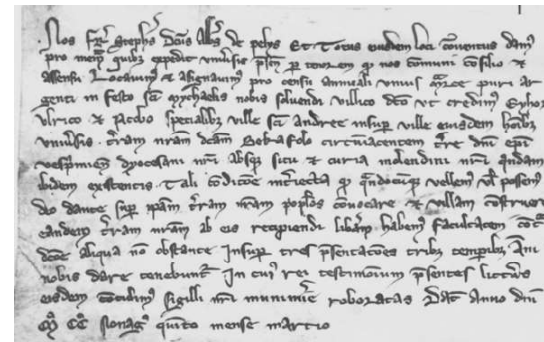 Nos Frr Stephs Dcus Abbs de pelys Et Totus eiusdem loci conuentus dam
pro mem quibz expedit vniusis psen p tenorem qd nos comuni cosilio et
assensu Locauim et asignauim pro censu annuali vnius mrce puri ar
genti in festo sci mychaelis nobis soluendi villico dco vt credimus
vlrico et Jacobo specialibz ville sci andree insup ville eiusdem hoibz
vniusis terram nram dcam Betrafolo circuiacentem terre dni epi
vespimiens dyocesani nri absqz situ et curia molendini nri quodam
ibidem existentis Tali condicoe int iecta qd qndocuqz vellemus ul possem
deo dante sup ipam terram nram poplos conuocare et villam construere
eandem terram nram ab eis recipiendi libam habem facultatem
dcoe aliqua no obstante Insup tres psentacoes tribz tempibz Ani
nobis dare tenebunt In cui rei testimonium psentes litteras
eisdem sigilli nri munimie roboratas Dat anno dni
M CC Nonag quinto mense martio